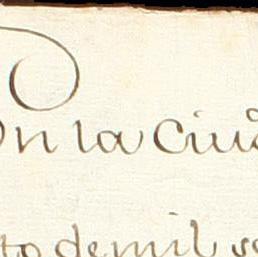 En la ciud
to de mil se